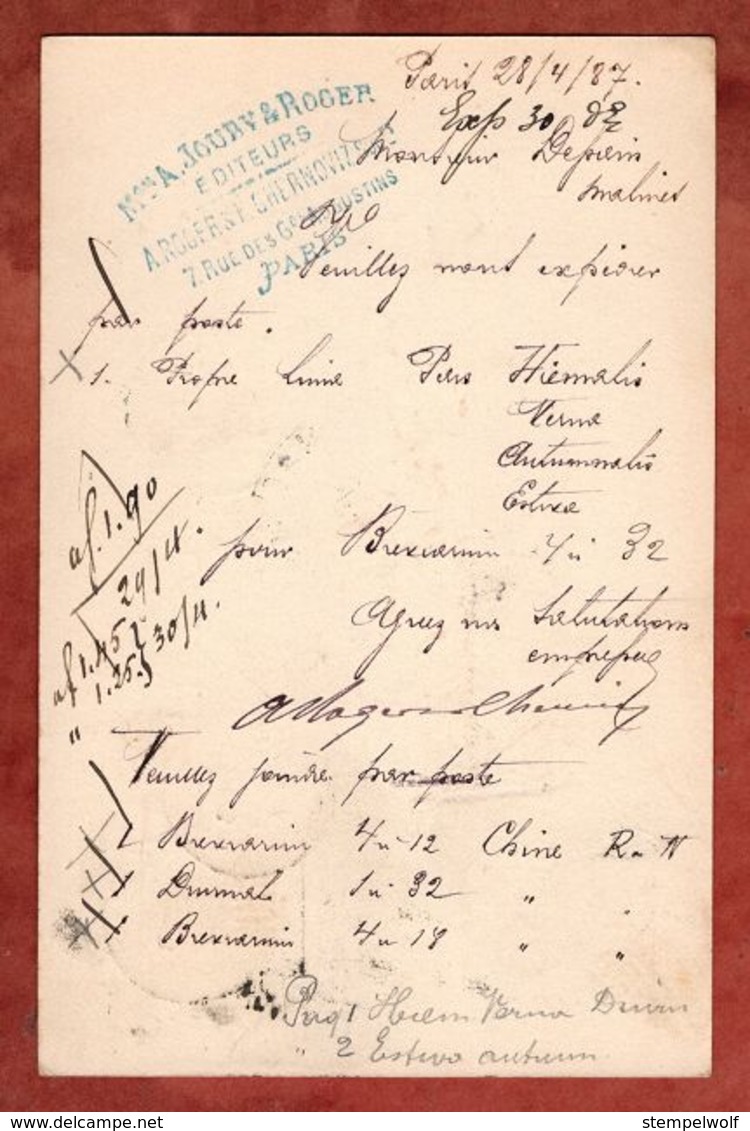 Paris 28/4/87.
Exp 30 do
Mon A. JOUBY & ROGER
EDITEURS
A. ROGER & F. CHERNOVIZ
7. RUE DES Gds AUGUSTINS
PARIS
Monsieur Dessain
Malines
Veuillez nous expédier
par poste.
1. Propre Pars Hiemalis
Verna
Autumnalis
Estiva
pour Breviarium 4° 32
af. 1.90
29/4.
af 1.45 } 30/4.
" 1.25. }
Agréez nos salutations
Veuillez joindre par poste
2 Breviarium 4° 12 Chine R. N
1 Diurnal 1° 32 " "
1 Breviarium 4° 18 " "
Paq 1 Hiem Verna Diurn
" 2 Estiva autumn.